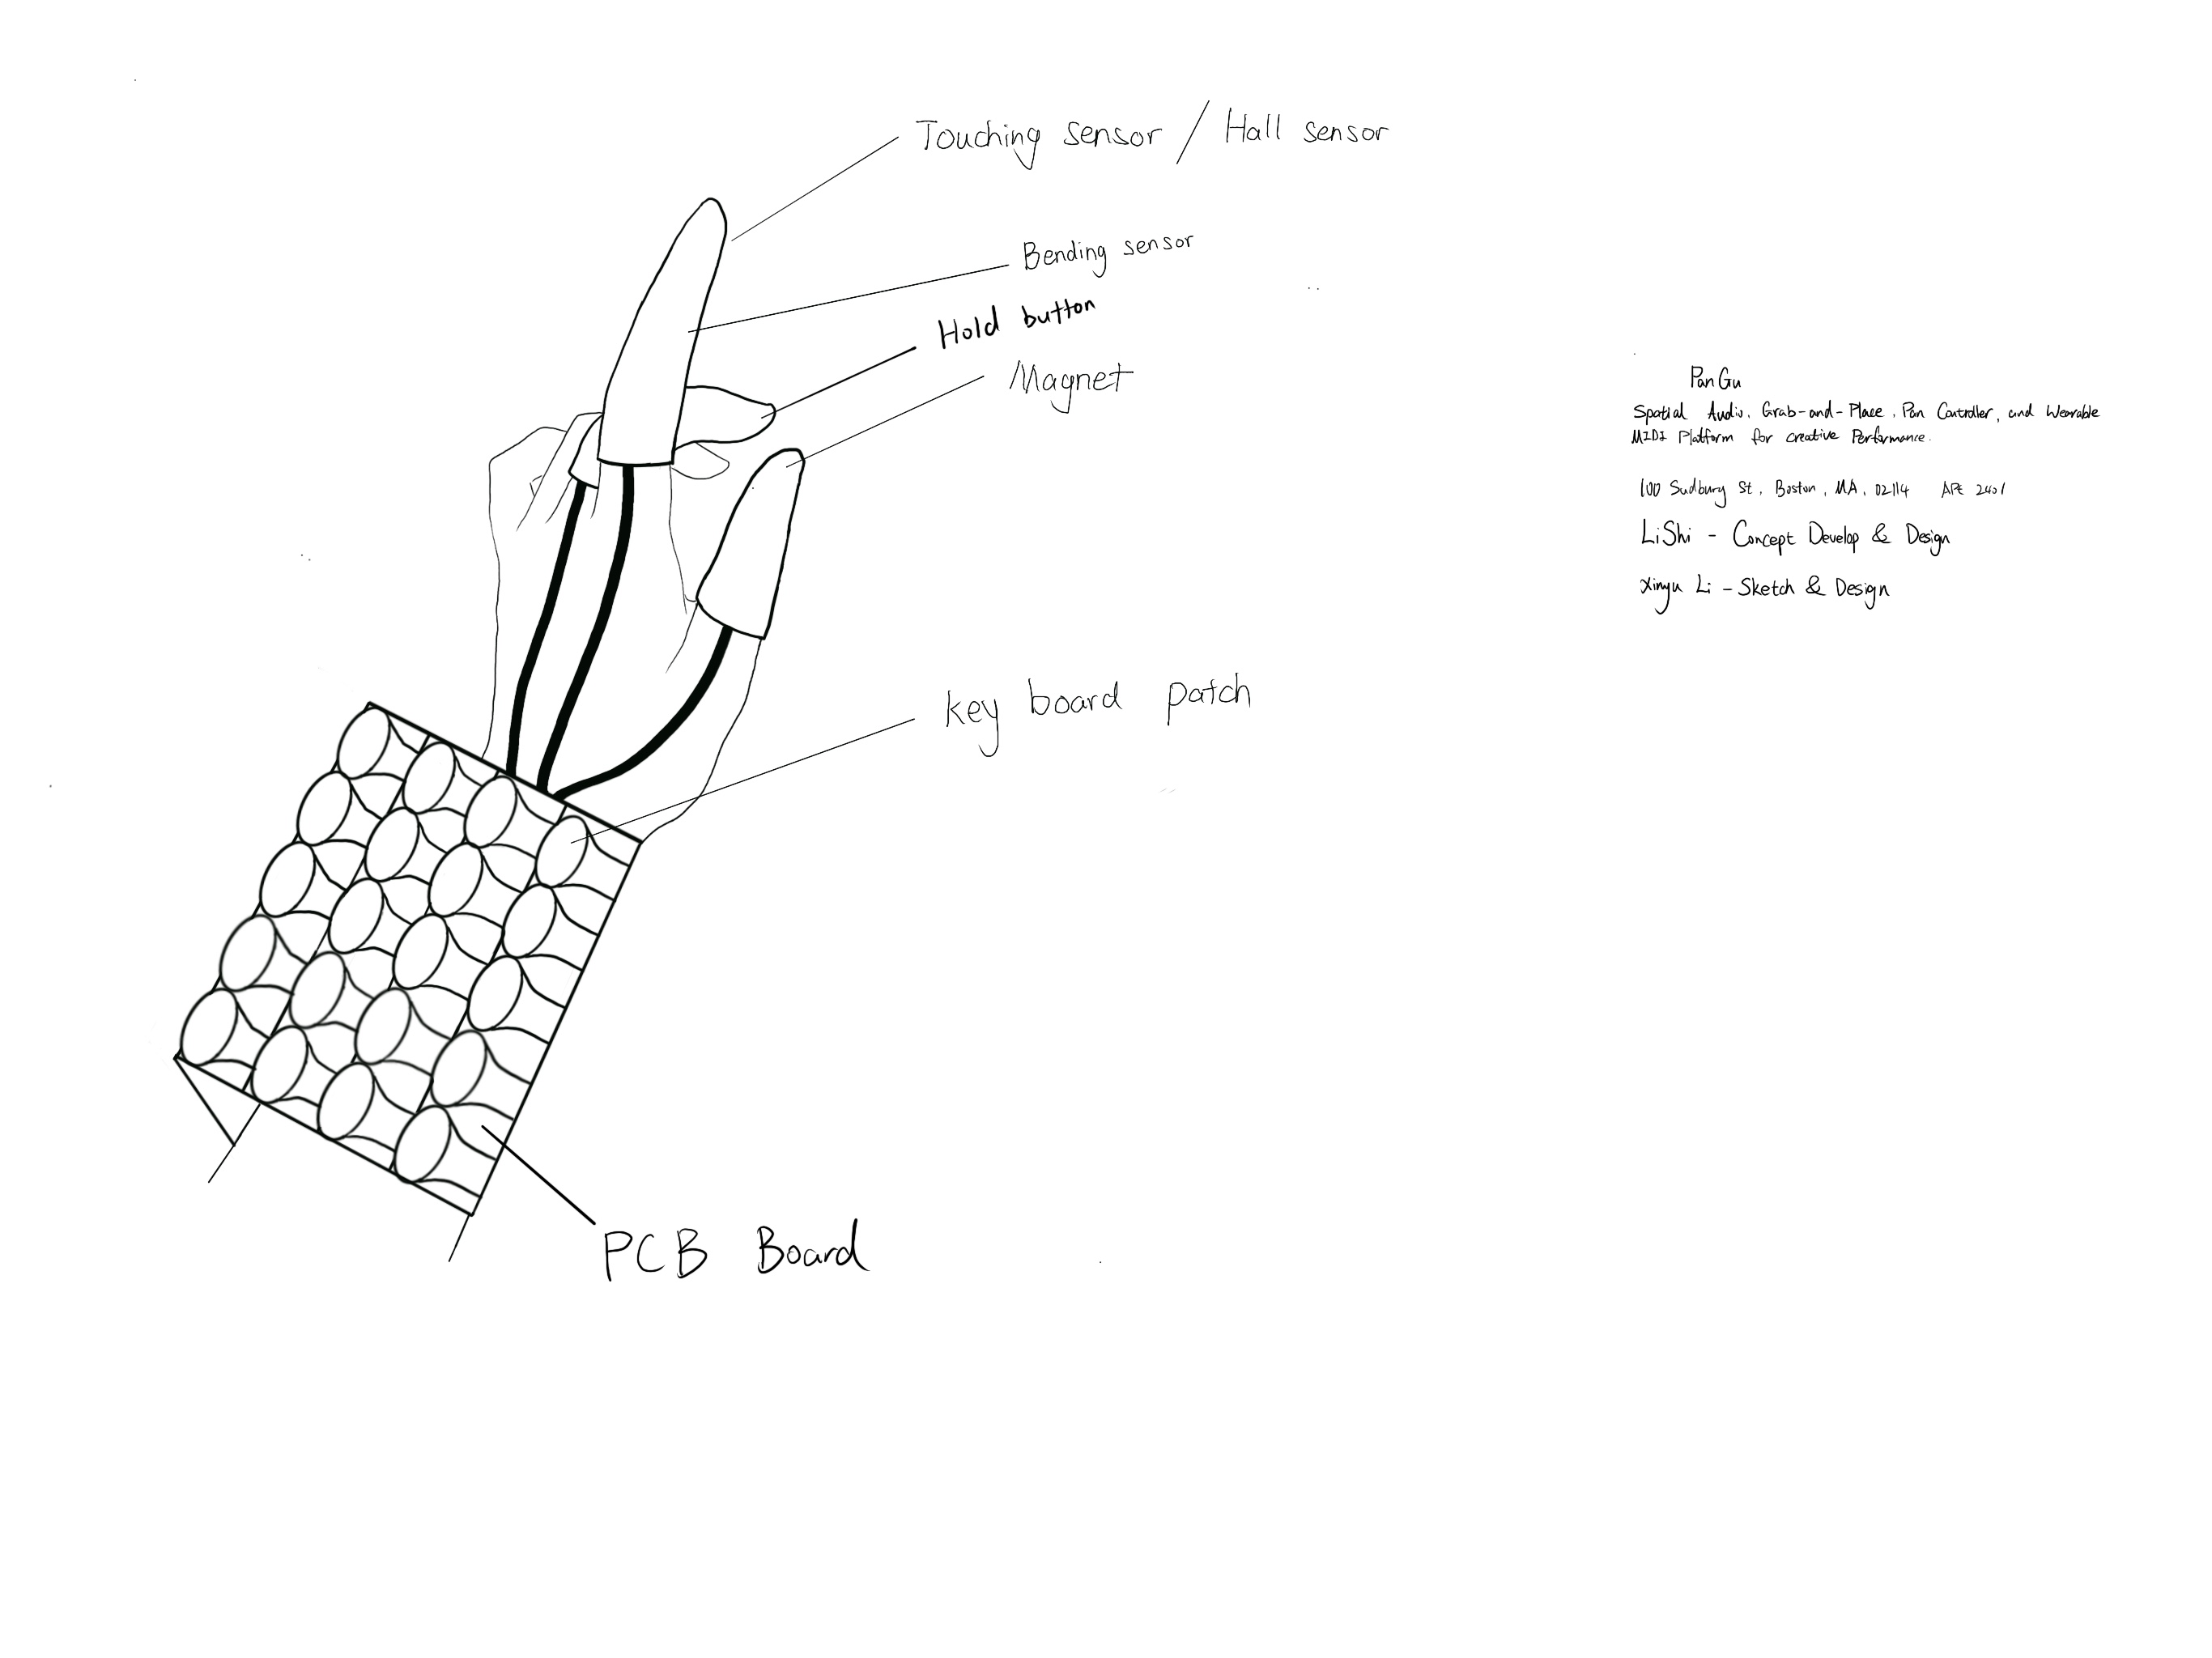 Touching sensor / Hall sensor
Bending sensor
Hold button
Magnet
key board patch
PCB Board
PanGu
Spatial Audio, Grab-and-Place, Pan Controller, and Wearable
MIDI Platform for creative Performance.
100 Sudbury St, Boston, MA, 02114 APt 2401
LiShi - Concept Develop & Design
Xinyu Li - Sketch & Design